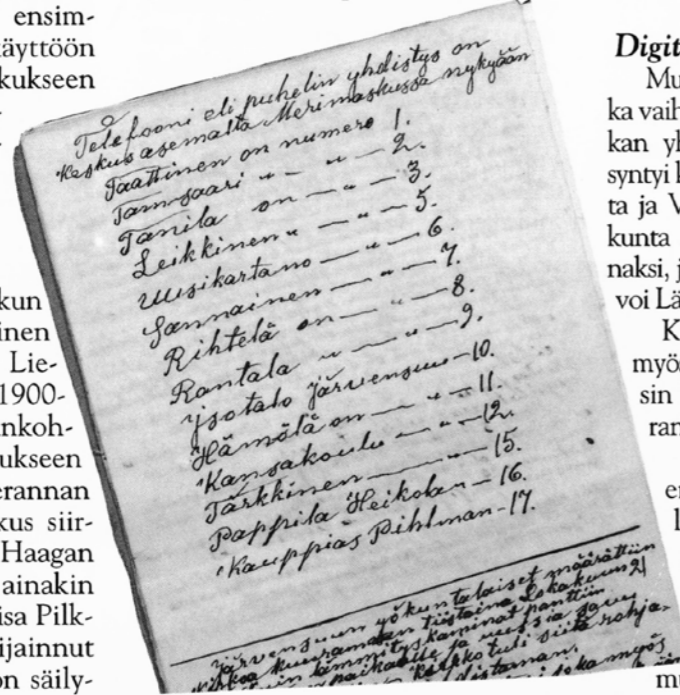 ensim-
käyttöön
kukseen
kun
inen
Lie-
1900-
nkoh-
ukseen
erannan
kus siir-
Haagan
ainakin
isa Pilk-
ijainnut
on säily-
Telefooni eli puhelin yhdistys on
keskus asemalta Merimaskussa nykyään
Taattinen on numero 1.
Tamsaari " — " — 2.
Tanila on — " — 3.
Leikkinen " — " — 5.
Uusikartano — " — 6.
Sannainen — " — 7.
Rihtelä on — " — 8.
Rantala " — " — 9.
Isotalo järvensuu — 10.
Hämölä on — " — 11.
Kansakoulu — " — 12.
Tärkkinen — — 15.
Pappila Heikola " — 16.
Kauppias Pihlman - 17.
järvensuun yökuntalaiset määrättiin
tiistaina Lokakuun 21
lämmityskaminat pantiin
paikalle ja uussia
kirkko tuli siitä
Digit
Mu
ka vaih
kan yh
syntyi k
ta ja V
kunta
naksi, j
voi Lä
K
myös
sin
ran
e
l
mu